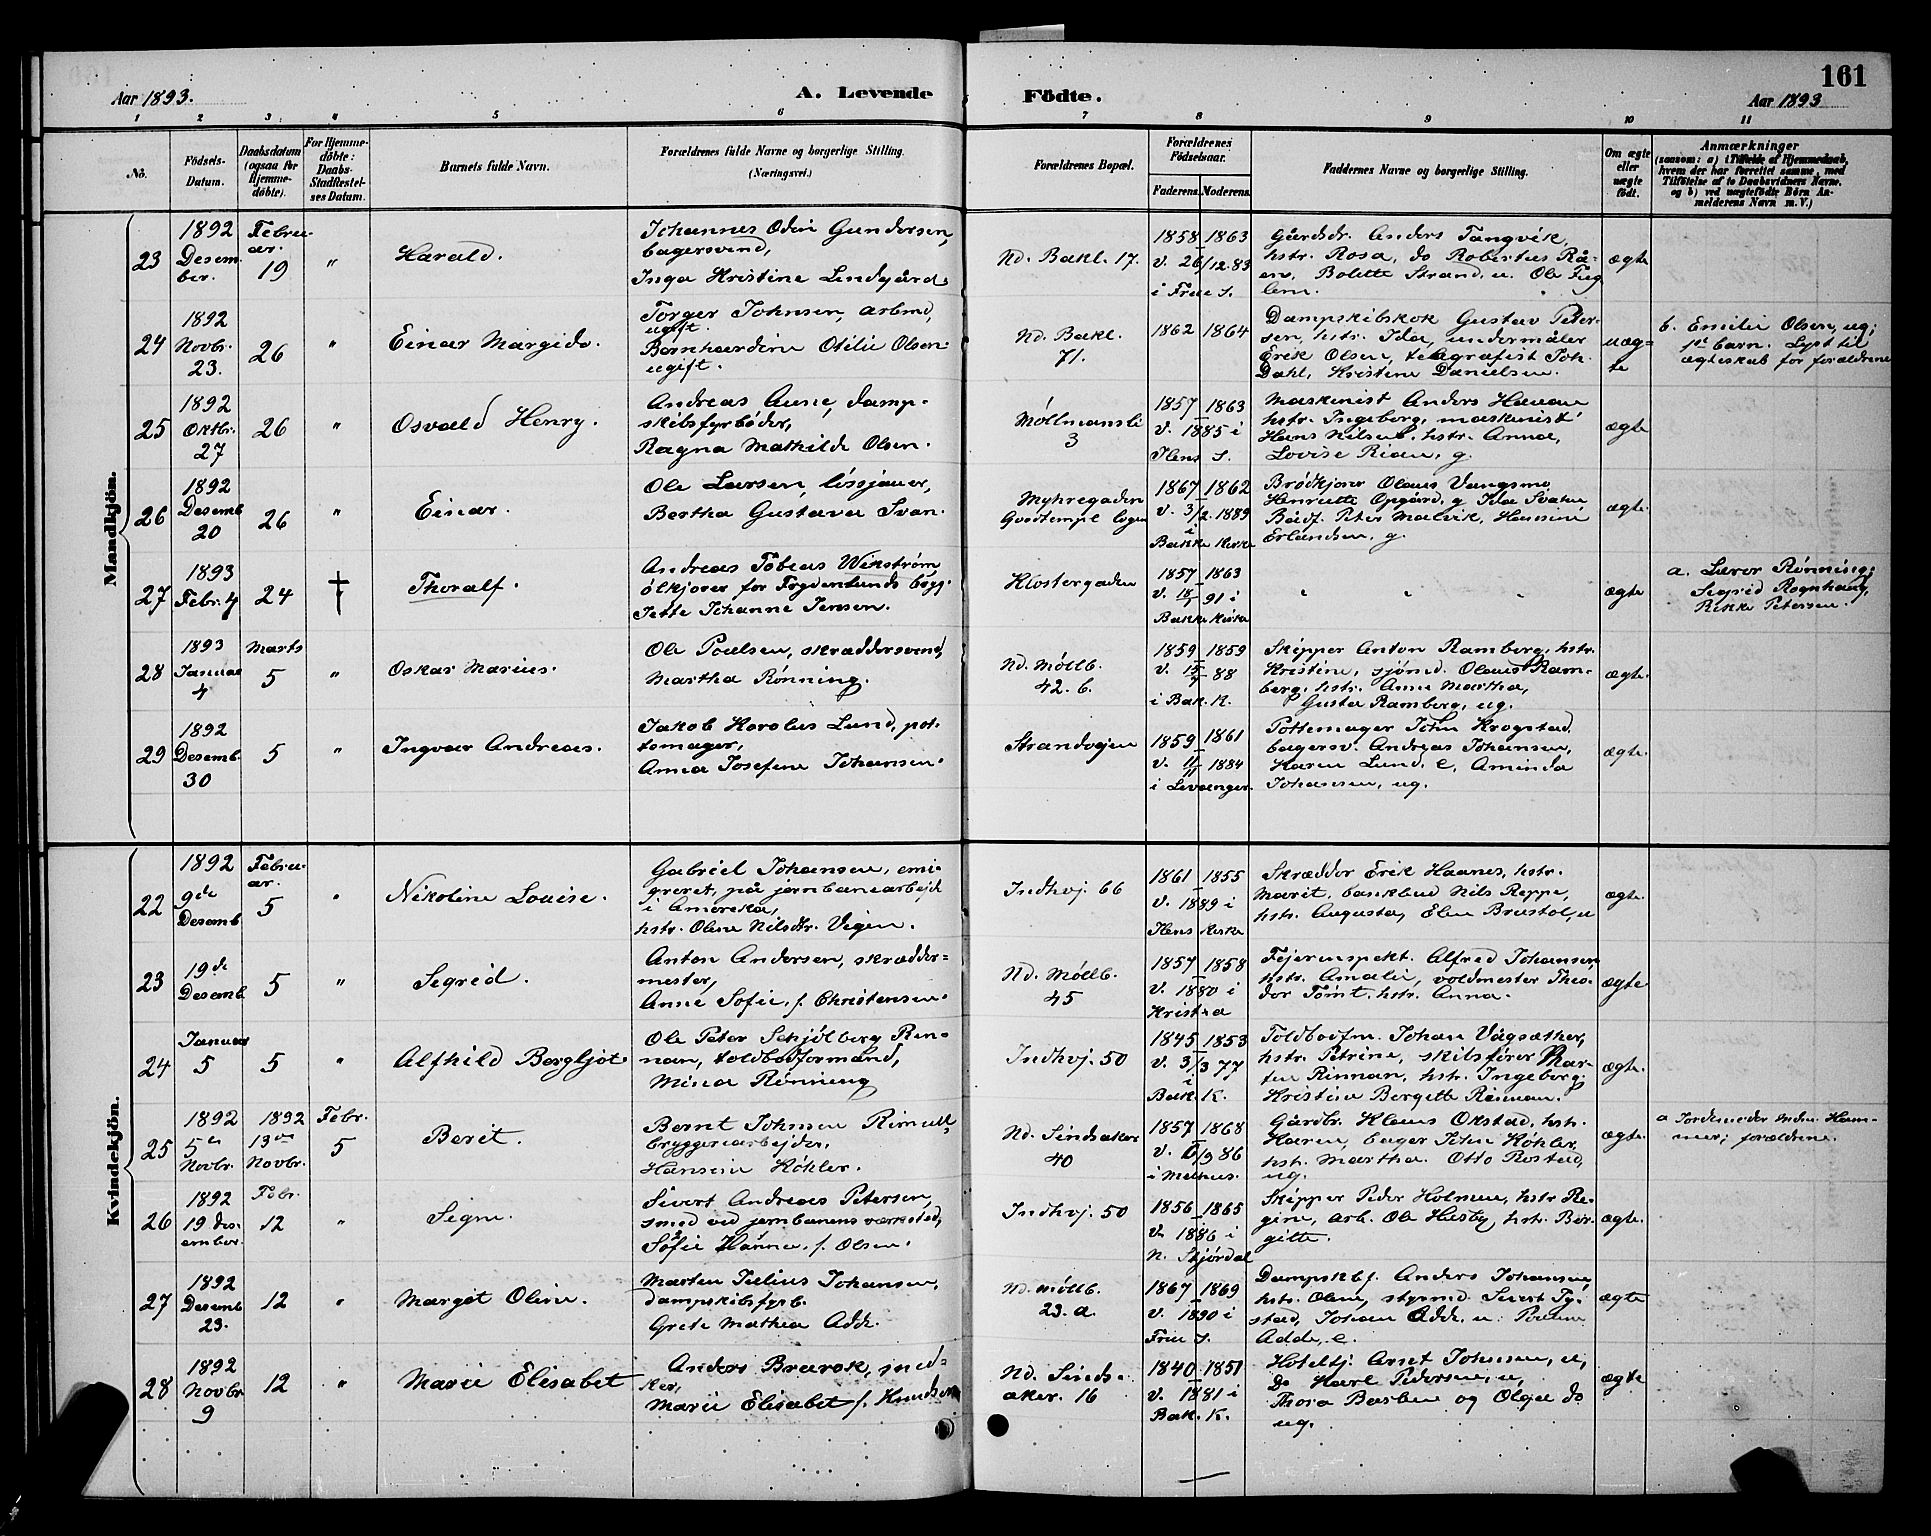 Aar 1893.
A. Levende
Födte.
161
Aar 1893
1 2 3 4 5 6 7 8 9 10 11
No.
Födsels-
Datum.
Daabsdatum
(ogsaa for
Hjemme-
döbte).
For Hjemme-
döbte:
Daabs-
Stadfæstel-
ses Datum.
Barnets fulde Navn.
Forældrenes fulde Navne og borgerlige Stilling.
(Næringsvei.)
Forældrenes Bopæl.
Forældrenes
Födselsaar.
Faderens. Moderens.
Faddernes Navne og borgerlige Stilling.
Om ægte
eller
uægte
födt.
Anmærkninger
(saasom: a) i Tilfælde af Hjemmedaab,
hvem der har forrettet samme, med
Tilföielse af to Daabsvidners Navne,
og b) ved uægtefödte Börn An-
melderens Navn m. V.)
Mandkjön.
23
1892
Desem
ber.
Febru-
ar.
19
"
Harald.
Johannes Odin Gundersen,
bagersvend,
Inga Kristine Lindgård.
Nd. Bakl. 17.
1858 1863
v. 26/12.83
i Frue S.
Gårdsdr. Anders Tangvik,
hstr. Rosa, do Robertus Rå-
en, Bolette Strand, u. Ole Fug
lem.
ægte
24
1892
Novbr.
23.
26
"
Einar Margido.
Torger Johnsen, arbmd,
ugift.
Bernhardine Otilie Olsen
ugift.
Nd. Bakl.
71.
1862 1864
Dampskibskok Gustav Peter-
sen, hstr. Ida, undermåler
Erik Olsen, telegrafist Joh
Dahl, Kristine Danielsen.
uæg-
te
b. Emilie Olsen, ug;
1st barn. Lyst til
ægteskab for forældrene
25
1892
Oktbr.
27
26
"
Osvald Henry.
Andreas Aune, damp-
skibsfyrbøder,
Ragna Mathilde Olsen.
Møllmansli
3
1857 1863
v. 1885 i
Ilens S.
Maskinist Anders Hauan
hstr. Ingeborg, maskinist
Hans Nilsen, hstr. Anna,
Lovise Rian, g.
ægte
26
1892
Desemb
20
26
"
Einar.
Ole Larsen, løssjauer,
Bertha Gustava Svan.
Myhregaden
Godtempl
1867 1862
v. 3/2.1889
i
Bakke Kirke
Brødkjører Olaus Vangsmo,
Henriette Opgård, g Ida Svaan
Bådf. Peter Malvik, Hansine
Erlandsen, g.
ægte.
27
1893
Febr. 4
24
†
Thoralf.
Andreas Tobias Wikstrøm
ølkjører for Frydenlunds brygg.
Jette Johanne Jensen.
Klostergaden
1857 1863
v. 18/1 91 i
Bakke Kirke
" " "
ægte
a. Lærer Rønning;
Sigrid Rognhaug,
Rikke Petersen.
28
1893
Januar
4
Marts
5
"
Oskar Marius.
Ole Poulsen, skræddersvend,
Martha Rønning.
Nd. Møllb.
42. b.
1859 1859
v. 15/7 88
i Bak. K.
Skipper Anton Ramberg, hstr.
Kristine, sjømd. Olaus Ram-
berg, hstr. Anne Martha,
Gusta Ramberg, ug.
ægte.
29
1892
Desemb.
30
5
"
Ingvar Andreas.
Jakob Karolus Lund, pot-
temager,
Anna Josefine Johansen.
Strandvejen
1859 1861
v. 11/11 1884
i Levanger.
Pottemager John Krogstad,
bagersv. Andreas Johansen,
Karen Lund, e, Aminda
Johansen, ug.
ægte.
Kvindekjön.
22
1892
9de
Desemb
Febru-
ar.
5
"
Nikoline Louise.
Gabriel Johansen, emi
greret, på jernbanearbejd
i Amerika,
hstr. Oline Nilsdtr. Vigen.
Indhvj. 66
1861 1855
v. 1889 i
Ilens Kirke
Skrædder Erik Haanes, hstr.
Marit, bankbud Nils Reppe,
hstr. Augusta, Elen Brustol, u
ægte.
23
19de
Desemb
5
"
Sigrid.
Anton Andersen, skrædder-
mester,
Anne Sofie, f. Christensen.
Nd. Møllb.
45
1857 1858
v. 1880 i
Kristia
Fejerinspekt. Alfred Johansen,
hstr. Amalie, voldmester Theo-
dor Tømt, hstr. Anna.
ægte
24
Januar
5
5
"
Alfhild Bergljot
Ole Peter Schjølberg Rin-
nan, toldbodformand,
Mina Rønning
Indhvj. 50
1845 1853
v. 3/3 77
i
Bak. K.
Toldbodfm. Johan Vågsæther,
hstr. Petrine, skibsfører Mar-
ten Rinnan, hstr. Ingeborg;
Kristine Bergitte Rinnan.
ægte.
25
1892
5te
Novbr.
1892
13de
Novbr.
Febr.
5
Berit.
Bernt Johnsen Rimull,
bryggeriarbejder,
Hansine Köhler.
Nd. Sindsaker
40
1857 1868
v. 6/9 86
i Melhus.
Gårdbr. Klaus Okstad, hstr.
Karen, bager Peter Köhler,
hstr. Martha. Otto Rostad,
ug.
ægte.
a Jordemoder Ham-
mer; forældrene.
26
1892
19 des-
ember.
Febr.
12
"
Signe.
Sivert Andreas Petersen,
smed ved jernbanens værksted,
Sofie Hanna, f. Olsen.
Indhvj. 50
1856 1865
v. 1886 i
N. Stjørdal
Skipper Peder Holmen, hstr Re-
gine, arb. Ole Husby, hstr. Ber-
gitte.
ægte.
27
1892
Desemb
23.
12
"
Margit Oline.
Marten Julius Johansen,
dampskibsfyrb.
Grete Mathea Adde.
Nd. Møllb.
23. a.
1867 1869
v. 1890 i
Frue S.
Dampskbf. Anders Johansen,
hstr. Oline, styrmd. Sivert Ty-
stad, Johan Adde, u.
Adde, e.
ægte
28
1892
Novbr
9
12
"
Marie Elisabet
Anders Brærok, sned-
ker,
Marie Elisabet f. Knudsen
Nd. Sinds-
aker. 16
1840 1851
v. 1881 i
Bak. K.
Hotelkj. Arnt Johnsen, u,
Do Karl Pedersen, u,
Thora Basben og Olga do
ug.
ægte